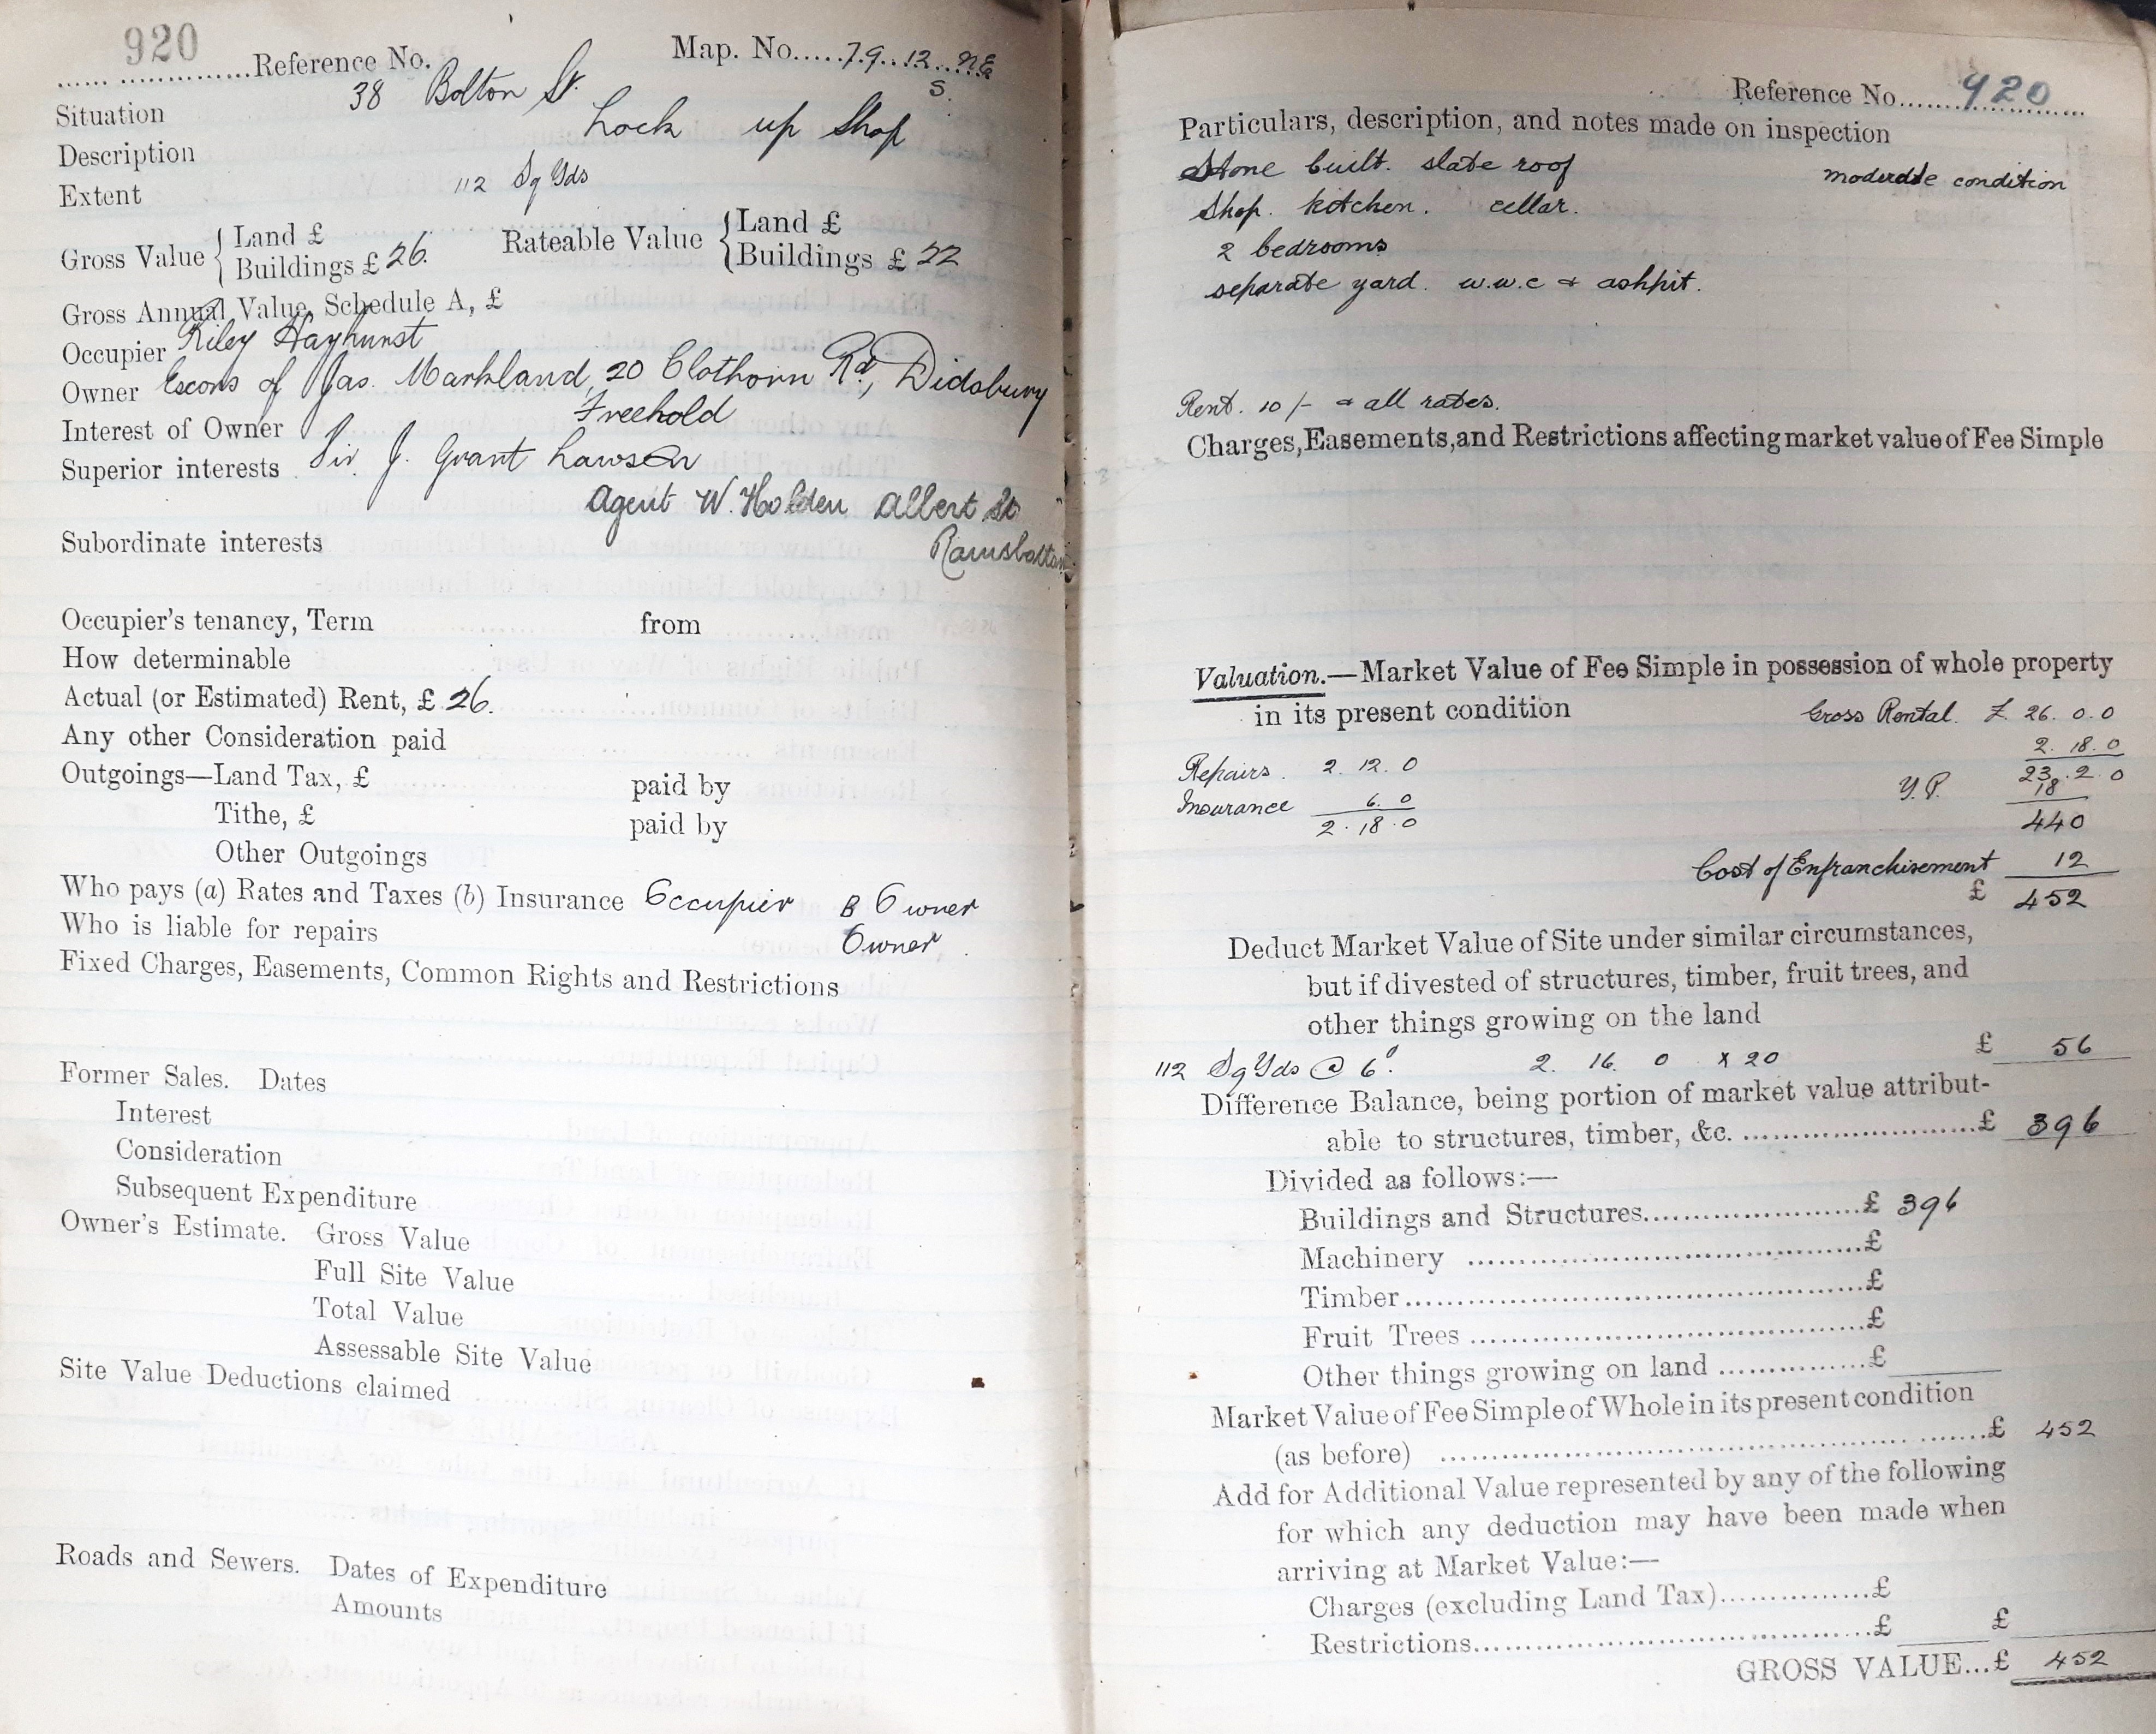 920
Reference No. Map. No. 79. 12. NE
S.
Situation 38 Bolton St.
Description Lock up Shop
Extent 112 Sq Yds
Gross Value { Land £
Buildings £ 26. Rateable Value { Land £
Buildings £ 22
Gross Annual Value, Schedule A, £
Occupier Riley Hayhurst
Owner Excors of Jas. Markland, 20 Clothorn Rd, Didsbury
Interest of Owner Freehold
Superior interests Sir J. Grant Lawson
Agent W. Holden Albert St
Ramsbottom
Subordinate interests
Occupier's tenancy, Term from
How determinable
Actual (or Estimated) Rent, £ 26.
Any other Consideration paid
Outgoings—Land Tax, £ paid by
Tithe, £ paid by
Other Outgoings
Who pays (a) Rates and Taxes (b) Insurance Occupier B Owner
Who is liable for repairs Owner
Fixed Charges, Easements, Common Rights and Restrictions
Former Sales. Dates
Interest
Consideration
Subsequent Expenditure
Owner's Estimate. Gross Value
Full Site Value
Total Value
Assessable Site Value
Site Value Deductions claimed
Roads and Sewers. Dates of Expenditure
Amounts
Reference No. 920
Particulars, description, and notes made on inspection
Stone built. slate roof moderate condition
Shop. kitchen. cellar.
2 bedrooms
separate yard. w.w.c & ashpit.
Rent. 10/- & all rates.
Charges, Easements, and Restrictions affecting market value of Fee Simple
Valuation.—Market Value of Fee Simple in possession of whole property
in its present condition Gross Rental £ 26. 0. 0
2. 18. 0
Repairs. 2. 12. 0 23. 2. 0
Insurance 6. 0 Y.P. 18
2. 18. 0 440
Cost of Enfranchisement 12
£ 452
Deduct Market Value of Site under similar circumstances,
but if divested of structures, timber, fruit trees, and
other things growing on the land
112 Sq Yds @ 6d. 2. 16. 0 x 20 £ 56
Difference Balance, being portion of market value attribut-
able to structures, timber, &c. £ 396
Divided as follows:—
Buildings and Structures £ 396
Machinery £
Timber £
Fruit Trees £
Other things growing on land £
Market Value of Fee Simple of Whole in its present condition
(as before) £ 452
Add for Additional Value represented by any of the following
for which any deduction may have been made when
arriving at Market Value:—
Charges (excluding Land Tax) £
Restrictions £ £
GROSS VALUE...£ 452